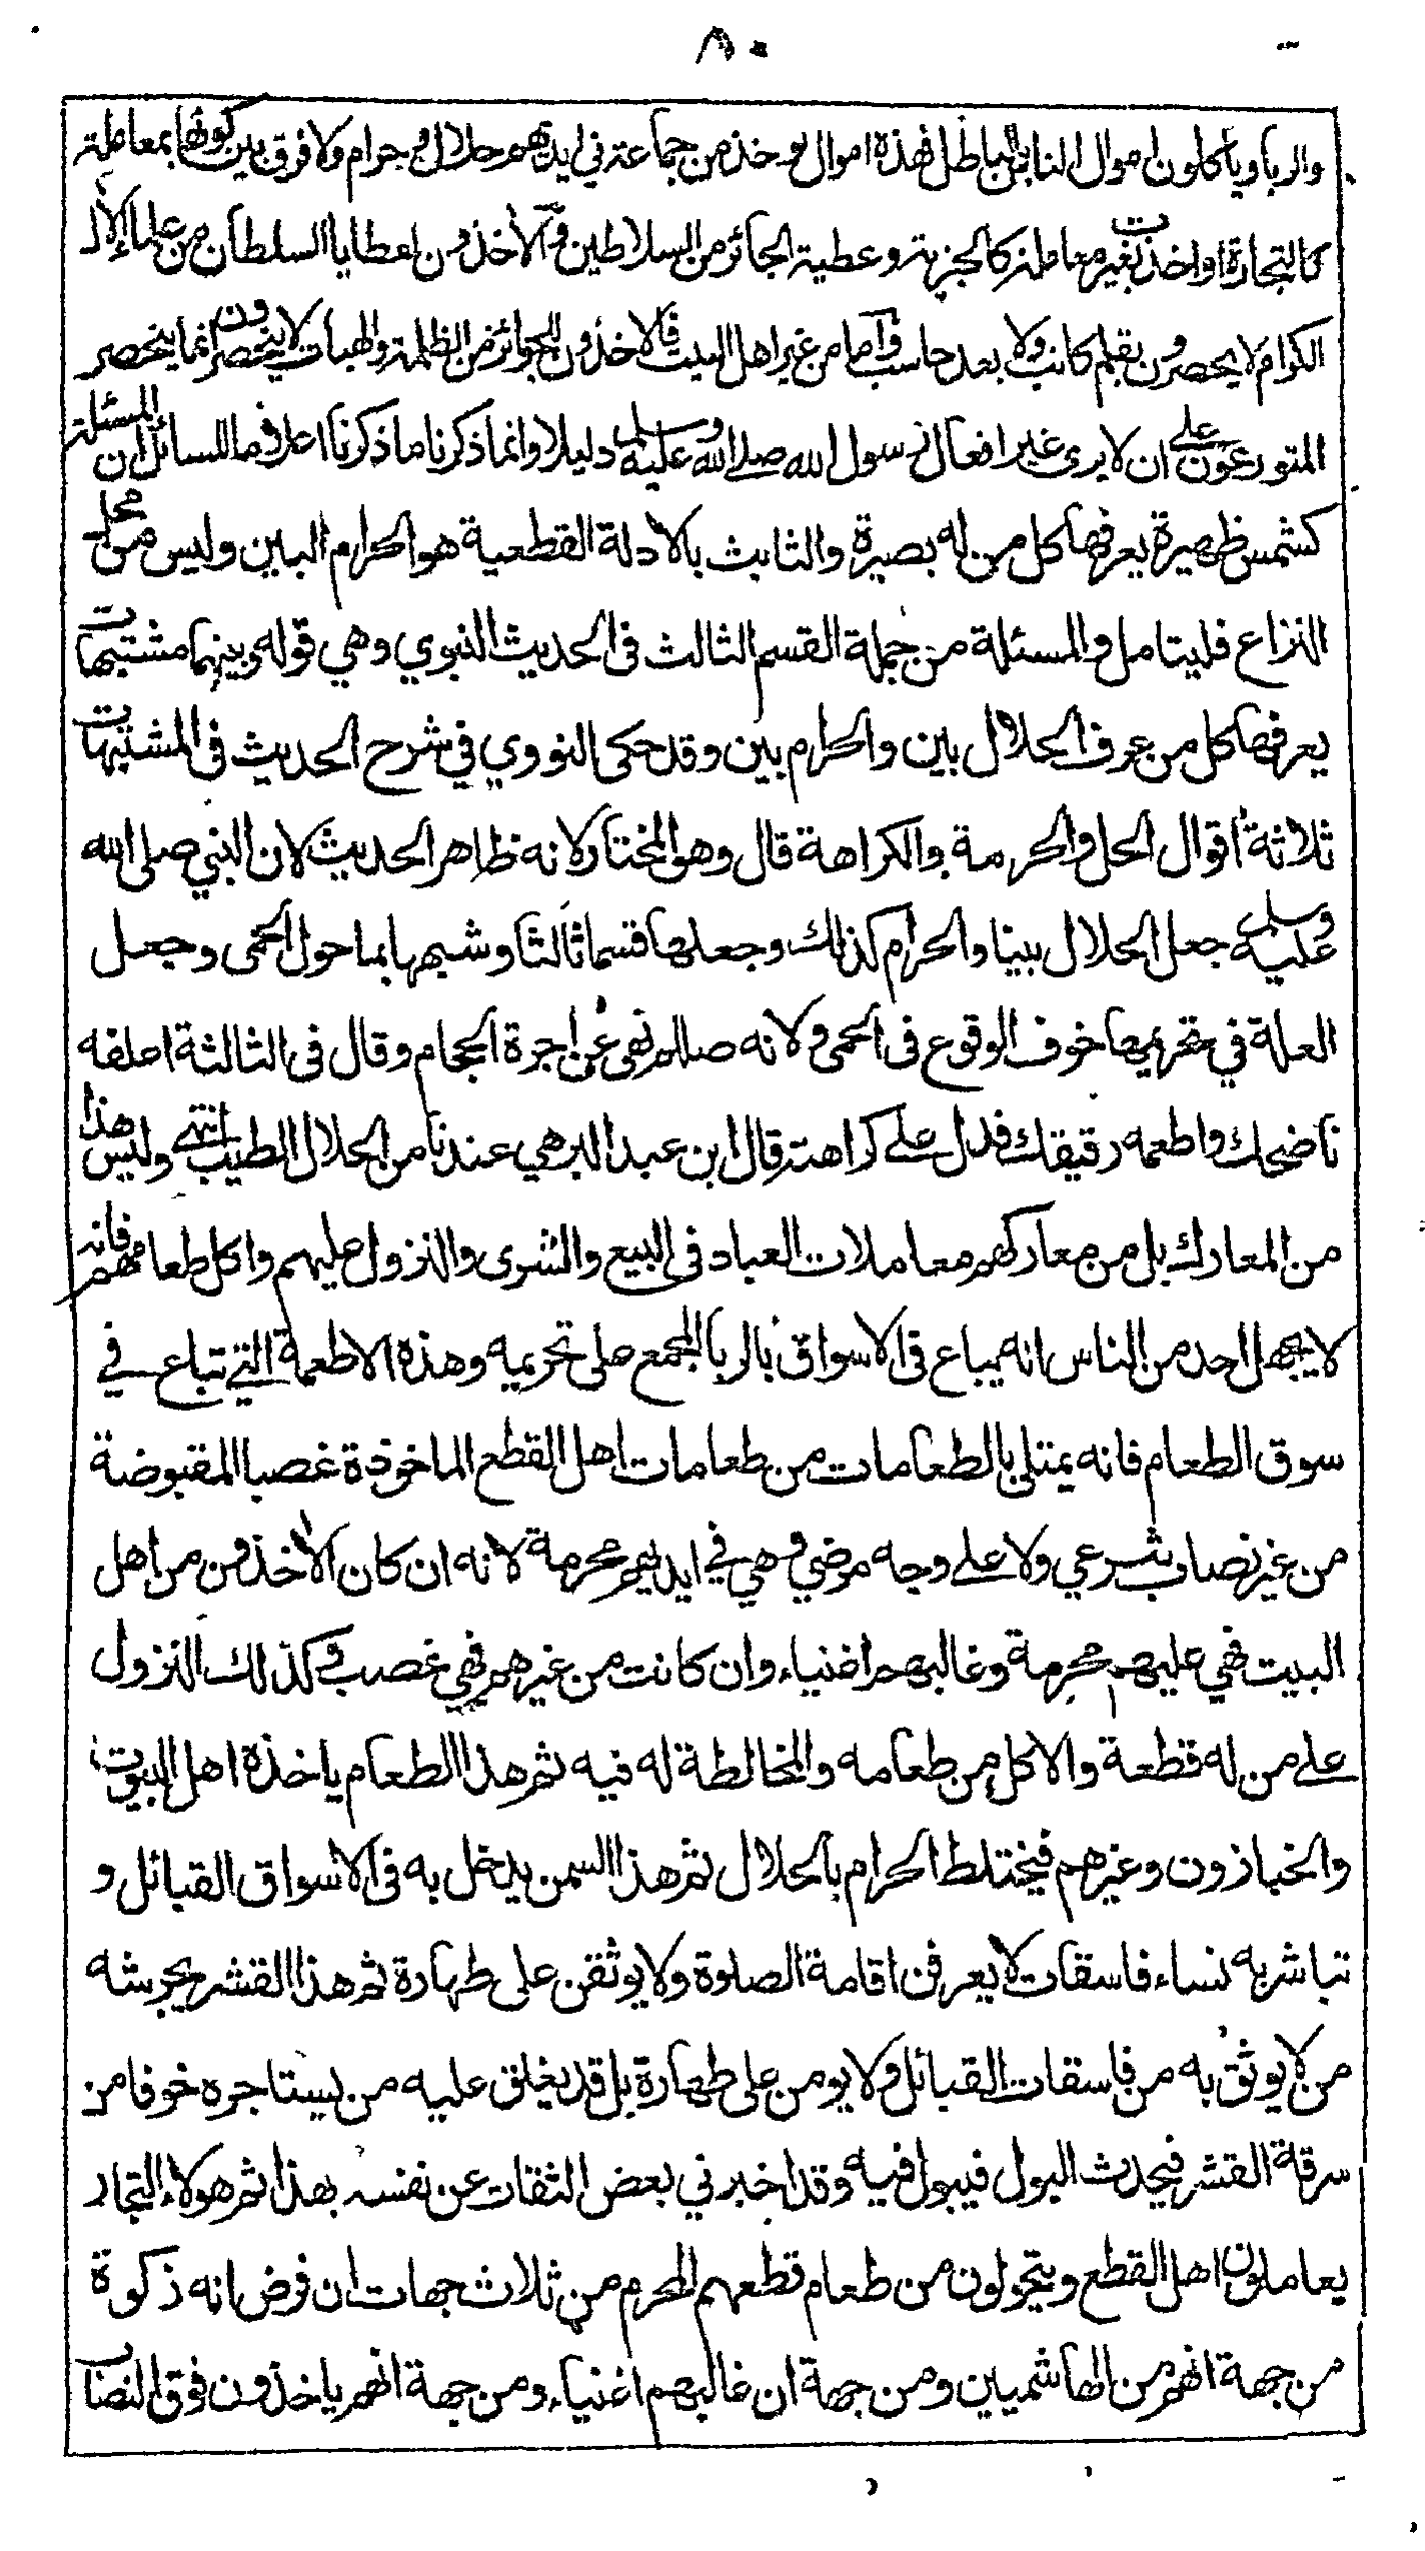 ٨٠
والربا وياكلون اموال الناس بالباطل فهذه اموال يوخذ من جماعة في ايديهم حلال وحرام ولا فرق بين كونها بمعاملة
كالتجارة او اخذت بغير معاملة كالجزية وعطية الجائر من السلاطين والآخذون اعطايا السلطان من علماء الآل
الكرام لا يحصرون بقلم كاتب ولا بعد حاسب واما من غير اهل البيت فالاخذون للجوائز من الظلمة والهبات لا ينحصرون انما ينحصر
المتورعون على ان لا يرى غير افعال رسول الله صلى الله عليه وسلم دليلا وانما ذكرنا ما ذكرنا اعلاما للسائل ان المسئلة
كشمس ظهيرة يعرفها كل من له بصيرة والثابت بالادلة القطعية هو الحرام البين وليس من محل
النزاع فليتامل والمسئلة من جملة القسم الثالث في الحديث النبوي وهي قوله وبينهما مشتبهات
يعرفها كل من عرف الحلال بين والحرام بين وقد حكى النووي في شرح الحديث في المشتبهات
ثلاثة اقوال الحل والحرمة والكراهة قال وهو المختار لانه ظاهر الحديث لان النبي صلى الله
عليه وسلم جعل الحلال بينا والحرام كذلك وجعلها قسما ثالثا وشبهها بما حول الحمى وجعل
العلة في تحريمها خوف الوقوع في الحمى ولانه صللم نهى عن اجرة الحجام وقال في الثالثة اعلفه
ناضحك واطعمه رقيقك فدل على كراهته قال ابن عبد البر هي عندنا من الحلال الطيب انتهى وليس هذا
من المعارك بل من معاركهم معاملات العباد في البيع والشرى والنزول عليهم واكل طعامهم فانه
لا يجهل احد من الناس انه يباع في الاسواق بالربا المجمع على تحريمه وهذه الاطعمة التي تباع في
سوق الطعام فانه يمتلي بالطعامات من طعامات اهل القطع الماخوذة غصبا المقبوضة
من غير نصاب شرعي ولا على وجه مرضي وهي في ايديهم محرمة لانه ان كان الآخذون من اهل
البيت فهي عليهم محرمة وغالبهم اغنياء وان كانت من غيرهم فهي غصب وكذلك النزول
على من له قطعة والاكل من طعامه والمخالطة له فيه ثم هذا الطعام ياخذه اهل البيوت
والخبازون وغيرهم فيختلط الحرام بالحلال ثم هذا السمن يدخل به في الاسواق القبائل و
تباشر به نساء فاسقات لا يعرفن اقامة الصلوة ولا يوثقن على طهارة ثم هذا القشر يجرشه
من لا يوثق به من فاسقات القبائل ولا يومن على طهارة بل قد يغلق عليه من يستاجره خوفا من
سرقة القشر فيحدث البول فيبول فيه وقد اخبرني بعض الثقات عن نفسه بهذا ثم هولاء التجار
يعاملون اهل القطع ويتحولون من طعام قطعهم المحرم من ثلاث جهات ان فرض انه زكوة
من جهة انهم من الهاشميين ومن جهة ان غالبهم اغنياء ومن جهة انهم ياخذون فوق النصاب